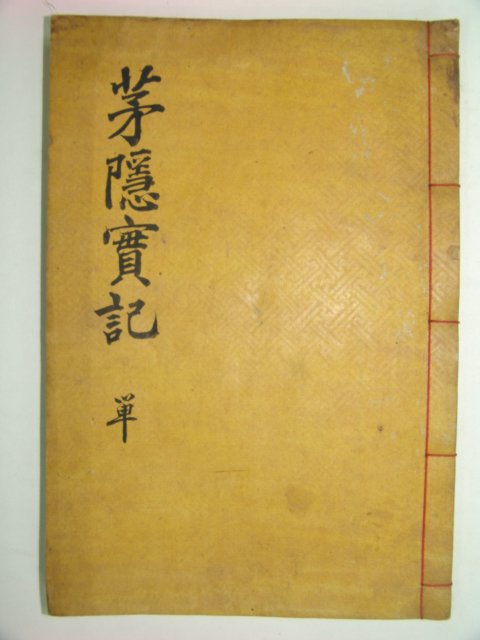 茅隱實記
単